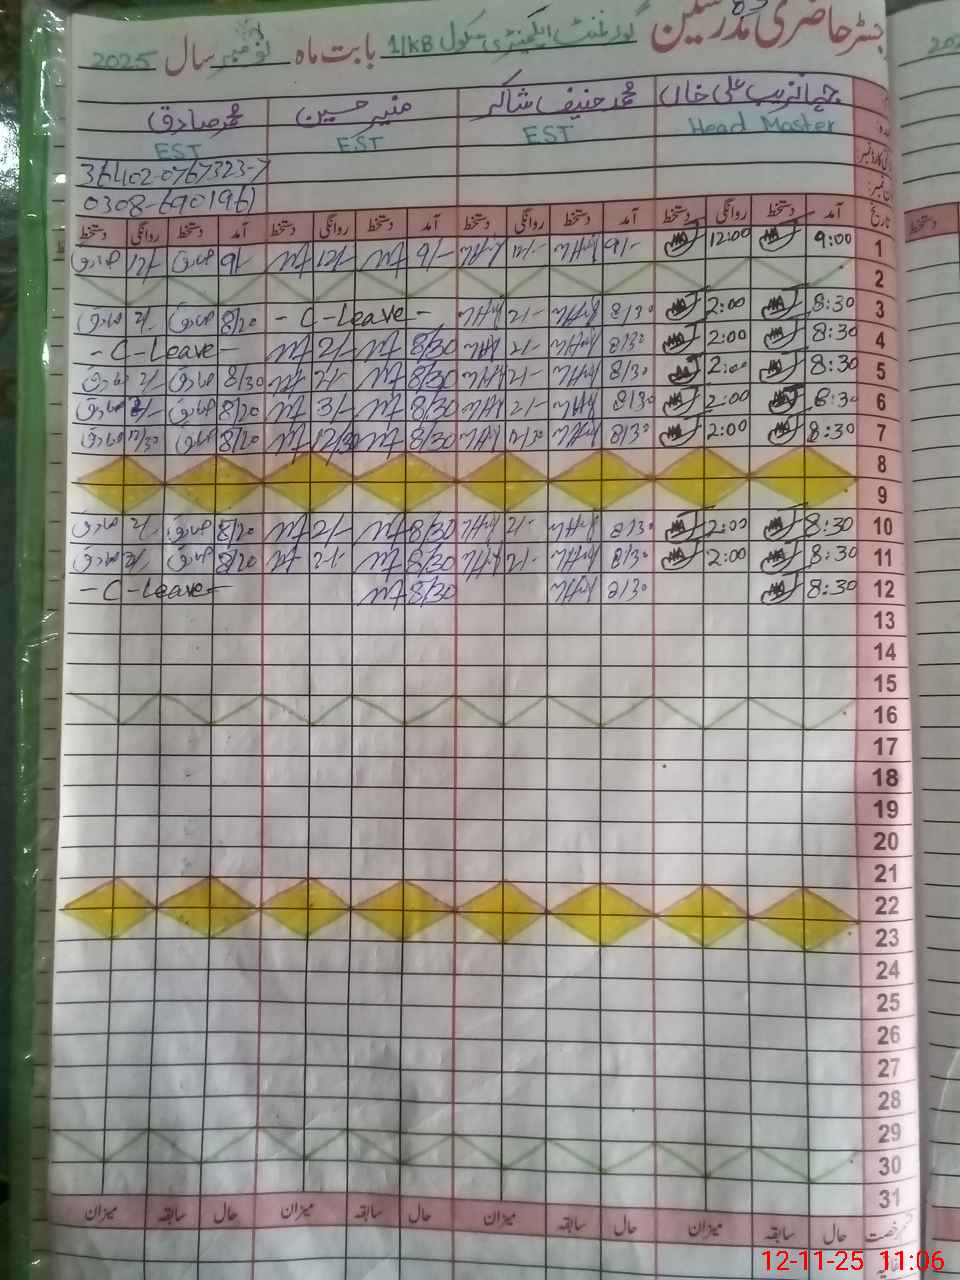 رجسٹر حاضری مدرسین گورنمنٹ ایلیمنٹری سکول 1/KB بابت ماہ نومبر سال 2025
جہانزیب علی خاں محمد حنیف شاکر منیر حسین محمد صادق
Head Master EST EST EST
36402-0767323-7
0308-6901961
تاریخ آمد دستخط روانگی دستخط آمد دستخط روانگی دستخط آمد دستخط روانگی دستخط آمد دستخط روانگی دستخط
1 9:00 12:00 9/- 12/- 9/- 12/- 9/- 12/-
2
3 8:30 2:00 8/30 2/- - C-Leave - 8/20 2/-
4 8:30 2:00 8/30 2/- 8/30 2/- - C-Leave -
5 8:30 2:00 8/30 2/- 8/30 2/- 8/30 2/-
6 8:30 2:00 8/30 2/- 8/30 3/- 8/20 2/-
7 8:30 2:00 8/30 12/30 8/30 12/30 8/20 12/30
8
9
10 8:30 2:00 8/30 2/- 8/30 2/- 8/20 2/-
11 8:30 2:00 8/30 2/- 8/30 2/- 8/20 2/-
12 8:30 8/30 8/30 - C-Leave -
13
14
15
16
17
18
19
20
21
22
23
24
25
26
27
28
29
30
31
حال سابقہ میزان حال سابقہ میزان حال سابقہ میزان حال سابقہ میزان
12-11-25 11:06